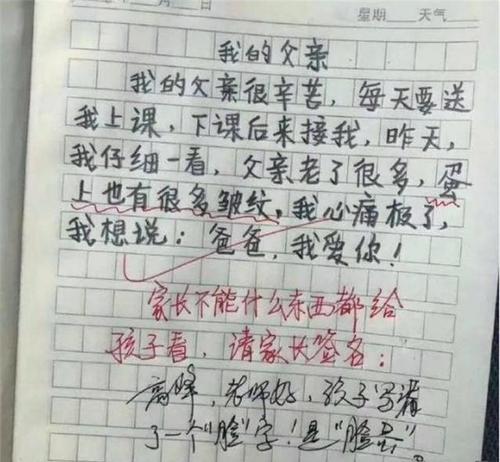 月 日 星期 天气
我的父亲
我的父亲很辛苦，每天要送
我上课，下课后来接我，昨天，
我仔细一看，父亲老了很多，蛋
上也有很多皱纹，我心痛极了，
我想说：爸爸，我爱你！
家长不能什么东西都给
孩子看，请家长签名：
高峰，老师好，孩子写错
了一个“脸”字！是“脸蛋”